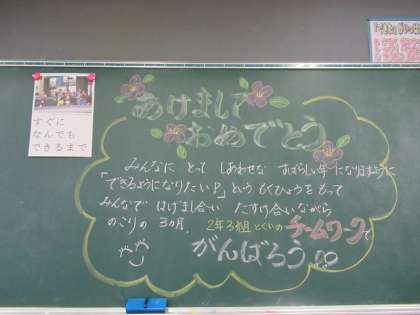 すぐに
なんでも
できるまで
あけまして
おめでとう
みんなに とって しあわせな すばらしい年になりますように
「できるようになりたい!」という もくひょうをもって
みんなで はげまし合い たすけ合いながら
のこりの 3カ月、2年3組 とくいの チームワークで
がんばろう!!